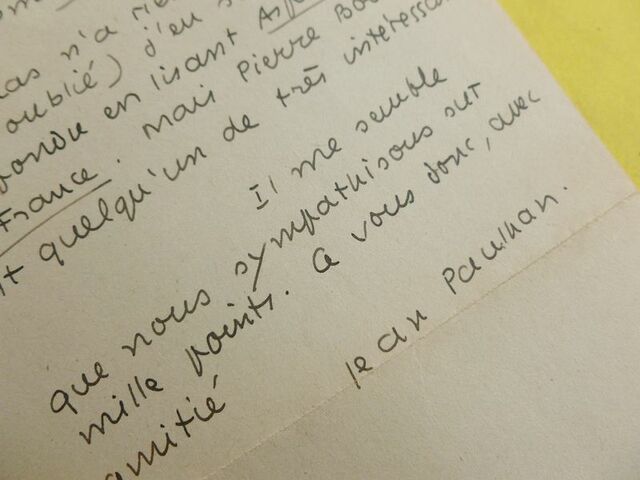 as n'a rie
oublié) j'en s
en lisant Asp
France. Mais Pierre Bo
t quelqu'un de très intéressa
Il me semble
que nous sympathisons sur
mille points. A vous donc, avec
amitié
Jean Paulhan.